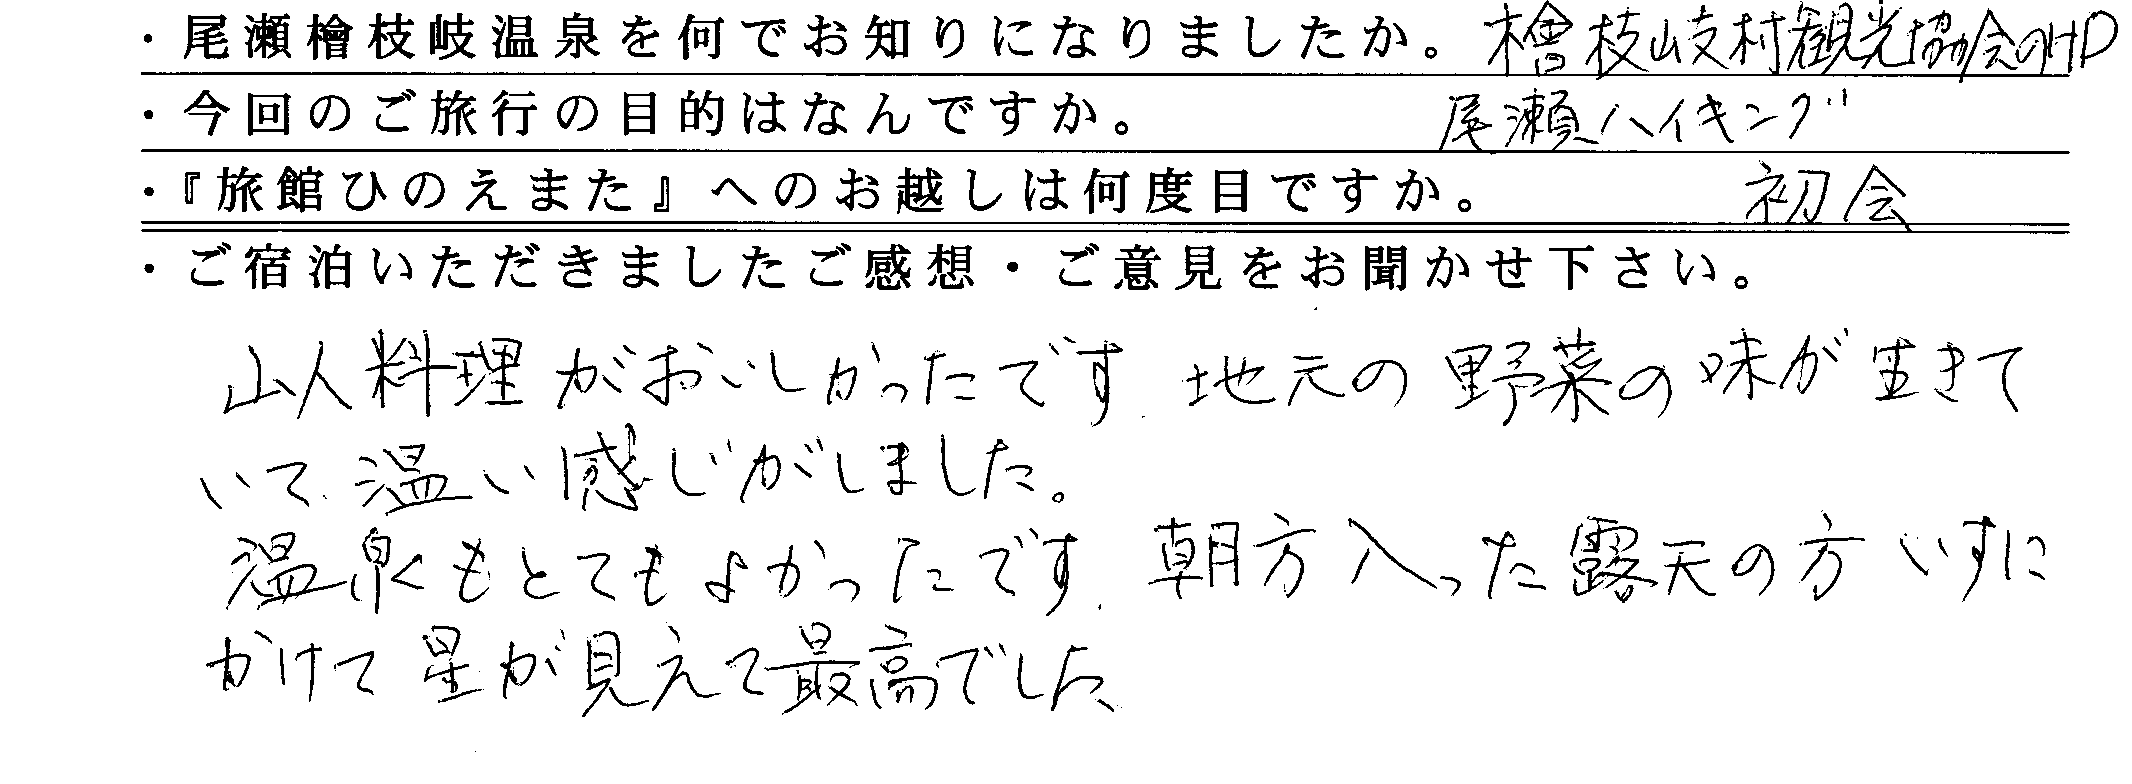 ・尾瀬檜枝岐温泉を何でお知りになりましたか。 檜枝岐村観光協会のHP
・今回のご旅行の目的はなんですか。 尾瀬ハイキング
・『旅館ひのえまた』へのお越しは何度目ですか。 初会
・ご宿泊いただきましたご感想・ご意見をお聞かせ下さい。
山人料理がおいしかったです、地元の野菜の味が生きて
いて、温い感じがしました。
温泉もとてもよかったです、朝方入った露天の方いすに
かけて星が見えて最高でした、